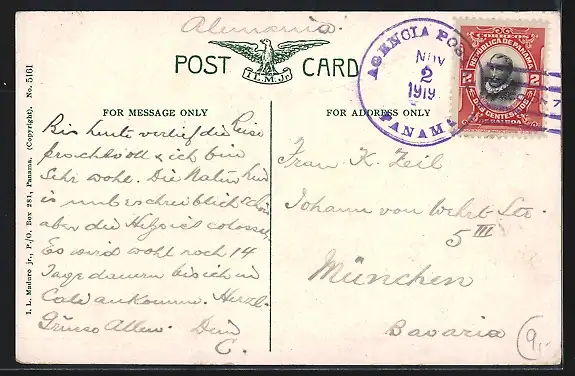 Alemania.
POST CARD
I.L.M. Jr.
AGENCIA POS
NOV
2
1919
PANAMA
CORREOS
REPUBLICA DE PANAMA
2 2
DOS CENTESIMOS
DE BALBOA
FOR MESSAGE ONLY
FOR ADDRESS ONLY
I. L. Maduro jr., P./O. Box 281, Panama. (Copyright). No. 5161
Bis heute verlief die Reise
prachtvoll & ich bin
Sehr wohl. Die Natur hier
is unbeschreiblich schön
aber die Hitze ist colossal.
Es wird wohl noch 14
Tage dauern bis ich in
Cali ankomme. Herzl.
Grüsse Allen. Dein
C.
Frau K. Zeil
Johann von Wehrt-Str.
5 III
München
Bavaria
9,-